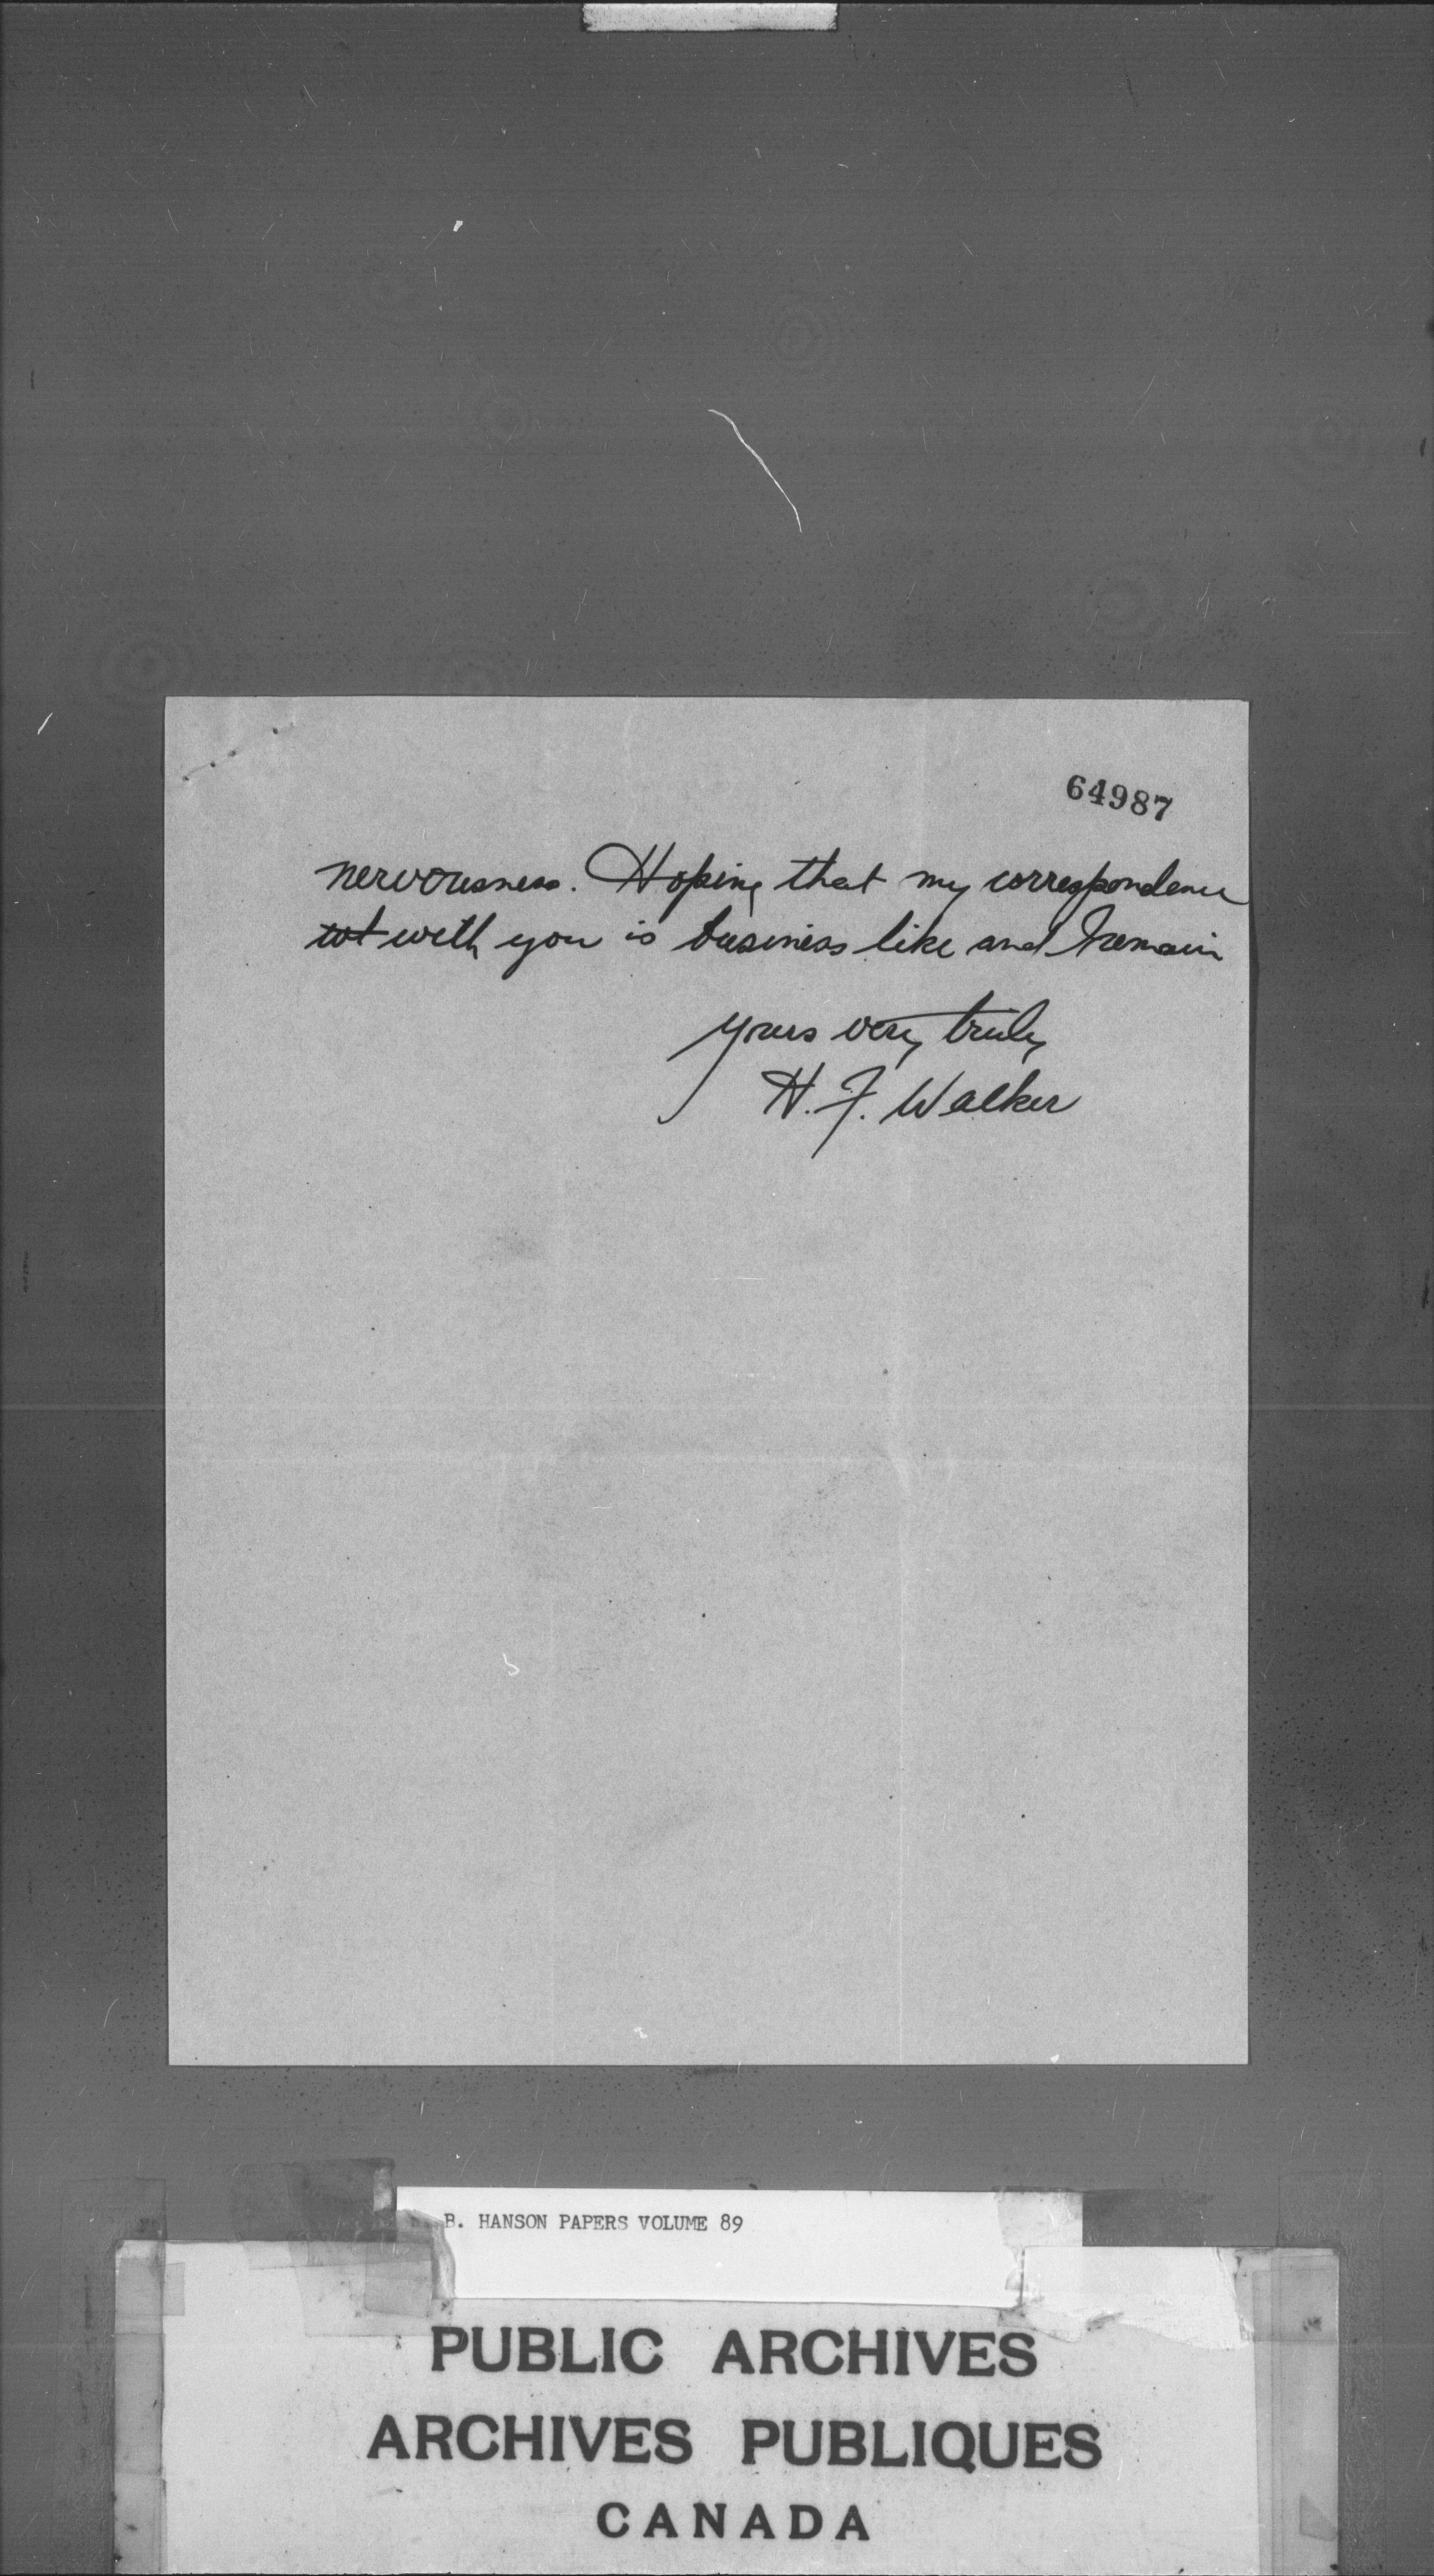 64987
nervousness. Hoping that my correspondence
wt with you is business like and I remain
yours very truly
H. F. Walker
B. HANSON PAPERS VOLUME 89
PUBLIC ARCHIVES
ARCHIVES PUBLIQUES
CANADA